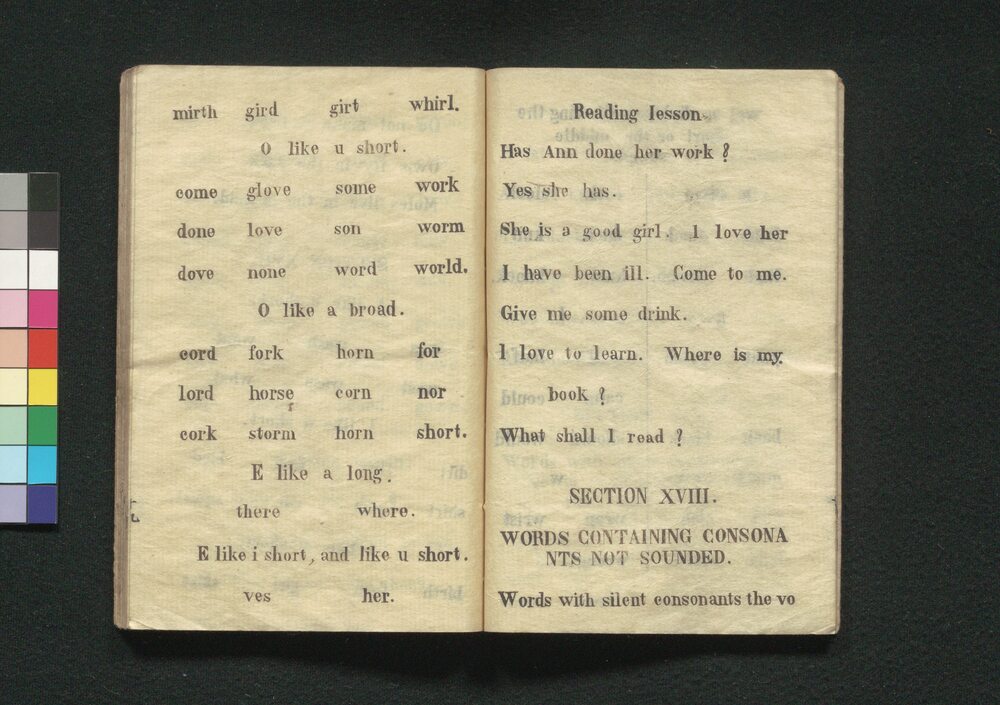 mirth gird girt whirl.
O like u short.
come glove some work
done love son worm
dove none word world.
O like a broad.
cord fork horn for
lord horse corn nor
cork storm horn short.
E like a long.
there where.
E like i short, and like u short.
yes her.
Reading lesson.
Has Ann done her work ?
Yes she has.
She is a good girl. I love her
I have been ill. Come to me.
Give me some drink.
I love to learn. Where is my
book ?
What shall I read ?
SECTION XVIII.
WORDS CONTAINING CONSONA
NTS NOT SOUNDED.
Words with silent consonants the vo